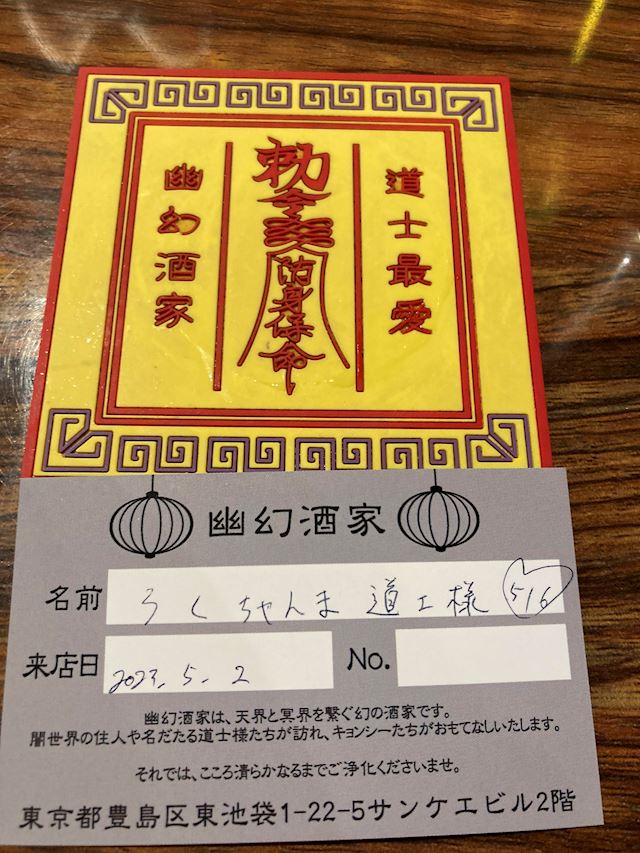 道士最愛
勅令
治身保命
幽幻酒家
幽幻酒家
名前 ろくちゃんま 道士様 516
来店日 2023.5.2 No.
幽幻酒家は、天界と冥界を繋ぐ幻の酒家です。
闇世界の住人や名だたる道士様たちが訪れ、キョンシーたちがおもてなしいたします。
それでは、こころ清らかなるまでご浄化くださいませ。
東京都豊島区東池袋1-22-5サンケエビル2階